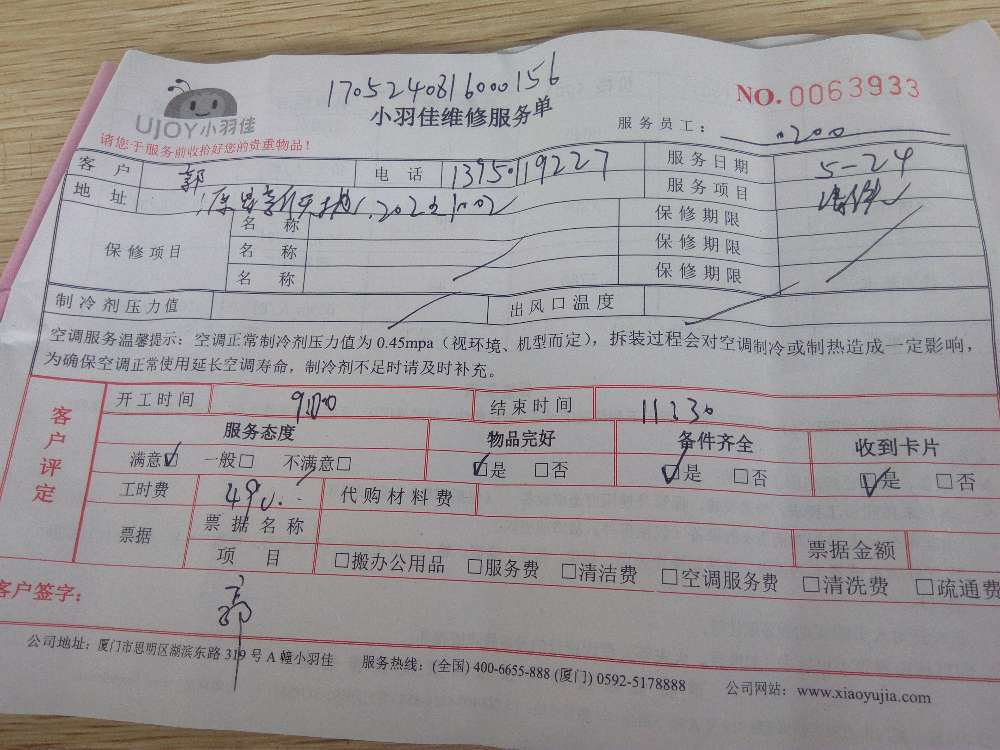 1705240816000156
UJOY小羽佳
小羽佳维修服务单
NO.0063933
请您于服务前收拾好您的贵重物品！
服务员工： 0200
客户 郭 电话 13950119227 服务日期 5-24
地址 202 1002 服务项目
保修项目 名称 保修期限
名称 保修期限
名称 保修期限
制冷剂压力值 出风口温度
空调服务温馨提示：空调正常制冷剂压力值为 0.45mpa（视环境、机型而定），拆装过程会对空调制冷或制热造成一定影响，
为确保空调正常使用延长空调寿命，制冷剂不足时请及时补充。
客户评定
开工时间 结束时间 11:30
服务态度 物品完好 备件齐全 收到卡片
满意☑ 一般□ 不满意□ ☑是 □否 ☑是 □否 ☑是 □否
工时费 490. 代购材料费
票据 票据名称 票据金额
项目 □搬办公用品 □服务费 □清洁费 □空调服务费 □清洗费 □疏通费
客户签字： 郭
公司地址：厦门市思明区湖滨东路 319 号 A 幢小羽佳 服务热线：(全国) 400-6655-888 (厦门) 0592-5178888 公司网站：www.xiaoyujia.com